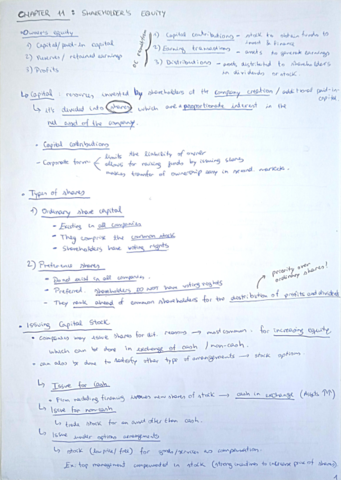 CHAPTER 11 : SHAREHOLDER'S EQUITY
• Owner's equity
1) Capital/paid-in capital
2) Reserves / retained earnings
3) Profits
1) Capital contributions → stock to obtain funds to invest & finance
2) Earning transactions → assets to generate earnings
3) Distributions → assets distributed to shareholders in dividends or stock
Capital : resources invested by shareholders at the company creation / additional paid-in-capital
↳ it's divided into shares which are a proportionate interest in the net asset of the company.
• Capital contributions
- Corporate form
limits the liability of owner
allows for raising funds by issuing shares
makes transfer of ownership easy in second. markets.
• Types of shares
1) Ordinary share capital
- Existing in all companies
- They comprise the common stock
- Shareholders have voting rights
2) Preference shares
- Do not exist in all companies
- Preferred shareholders do not have voting rights
- They rank ahead of common shareholders for the distribution of profits and dividends
priority over ordinary shares!
• Issuing Capital Stock
• Companies may issue shares for diff. reasons → most common: for increasing equity
which can be done in exchange of cash / non-cash.
• can also be done to satisfy other type of arrangements → stock options
↳ Issue for cash
• Firm needing finance issues new shares of stock → cash in exchange
↳ Issue for non-cash
↳ trade stock for an asset other than cash.
↳ Issue under options arrangements
↳ stock for goods/services as compensation.
Ex: top management compensated in stock (strong incentives to increase price of shares)
1